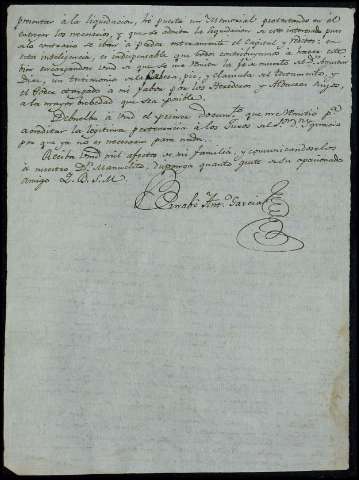 presentar a la liquidacion, he puesto un Memorial protestando en el
entregar los necesarios, y que se admita la liquidacion
lo contrario se iban a perder enteramente el Capital, y reditos: en
esta inteligencia, es indispensable que todos contribuyamos a hacer este
encargandose Vmd de que se me remita la fe de muerto de Dn. Agustin
Diaz, un testimonio de la Cabeza, pie, y clausula del testamento, y
el Poder otorgado a mi favor por los Herederos y Albaceas
a la mayor brebedad que sea posible.
Debuelbo a Vmd el primer Docum.to que me remitió p.a
acreditar la legitima pertenencia de los
por que ya no es necesario para nada.
Reciba Vmd mil afectos de mi familia, y comunicandoselos
a nuestro Dn. Manuelito, disponga quanto guste de su apasionado
Amigo Q. B. S. M.
Bernabé Ant.o Garcia